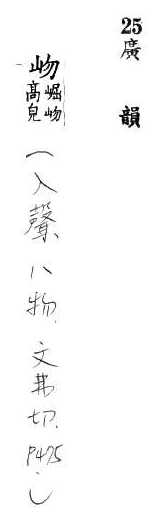 25 廣韻
岉 崛岉高皃（入聲、八物、文弗切、P475.）